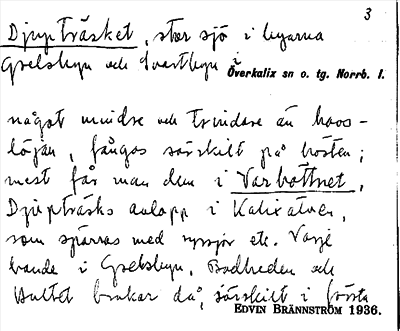 3
Djupträsket, stor sjö i byarna
Grelsbyn och Svartbyn i
Överkalix sn o. tg. Norrb. l.
något mindre och trindare än haos-
löjan, fångas särskilt på hösten;
mest får man dem i Varbottnet,
Djupträsks avlopp i Kalixälven,
som spärras med ryssjor etc. Varje
bonde i Grelsbyn, Bodheden och
brukar då, särskilt i första
EDVIN BRÄNNSTRÖM 1936.